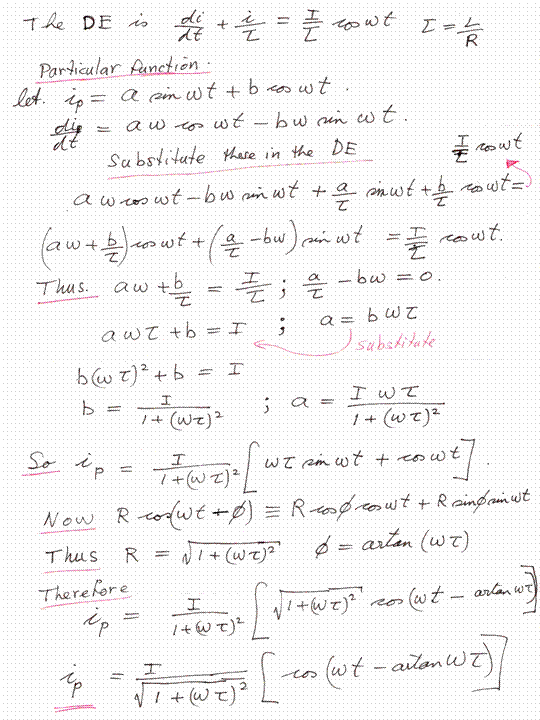 The DE is di/dt + i/τ = I/τ cos ωt τ = L/R
Particular function.
let. iₚ = a sin ωt + b cos ωt.
diₚ/dt = aω cos ωt − bω sin ωt.
Substitute these in the DE I/τ cos ωt
aω cos ωt − bω sin ωt + a/τ sin ωt + b/τ cos ωt =
(aω + b/τ) cos ωt + (a/τ − bω) sin ωt = I/τ cos ωt.
Thus. aω + b/τ = I/τ ; a/τ − bω = 0.
aωτ + b = I ; a = bωτ
substitute
b(ωτ)² + b = I
b = I/(1 + (ωτ)²) ; a = Iωτ/(1 + (ωτ)²)
So iₚ = I/(1 + (ωτ)²) [ωτ sin ωt + cos ωt].
Now R cos(ωt + φ) ≡ R cos φ cos ωt + R sin φ sin ωt
Thus R = √(1 + (ωτ)²) φ = artan (ωτ)
Therefore
iₚ = I/(1 + (ωτ)²) [√(1 + (ωτ)²) cos (ωt − artan ωτ)]
iₚ = I/√(1 + (ωτ)²) [cos (ωt − artan ωτ)]